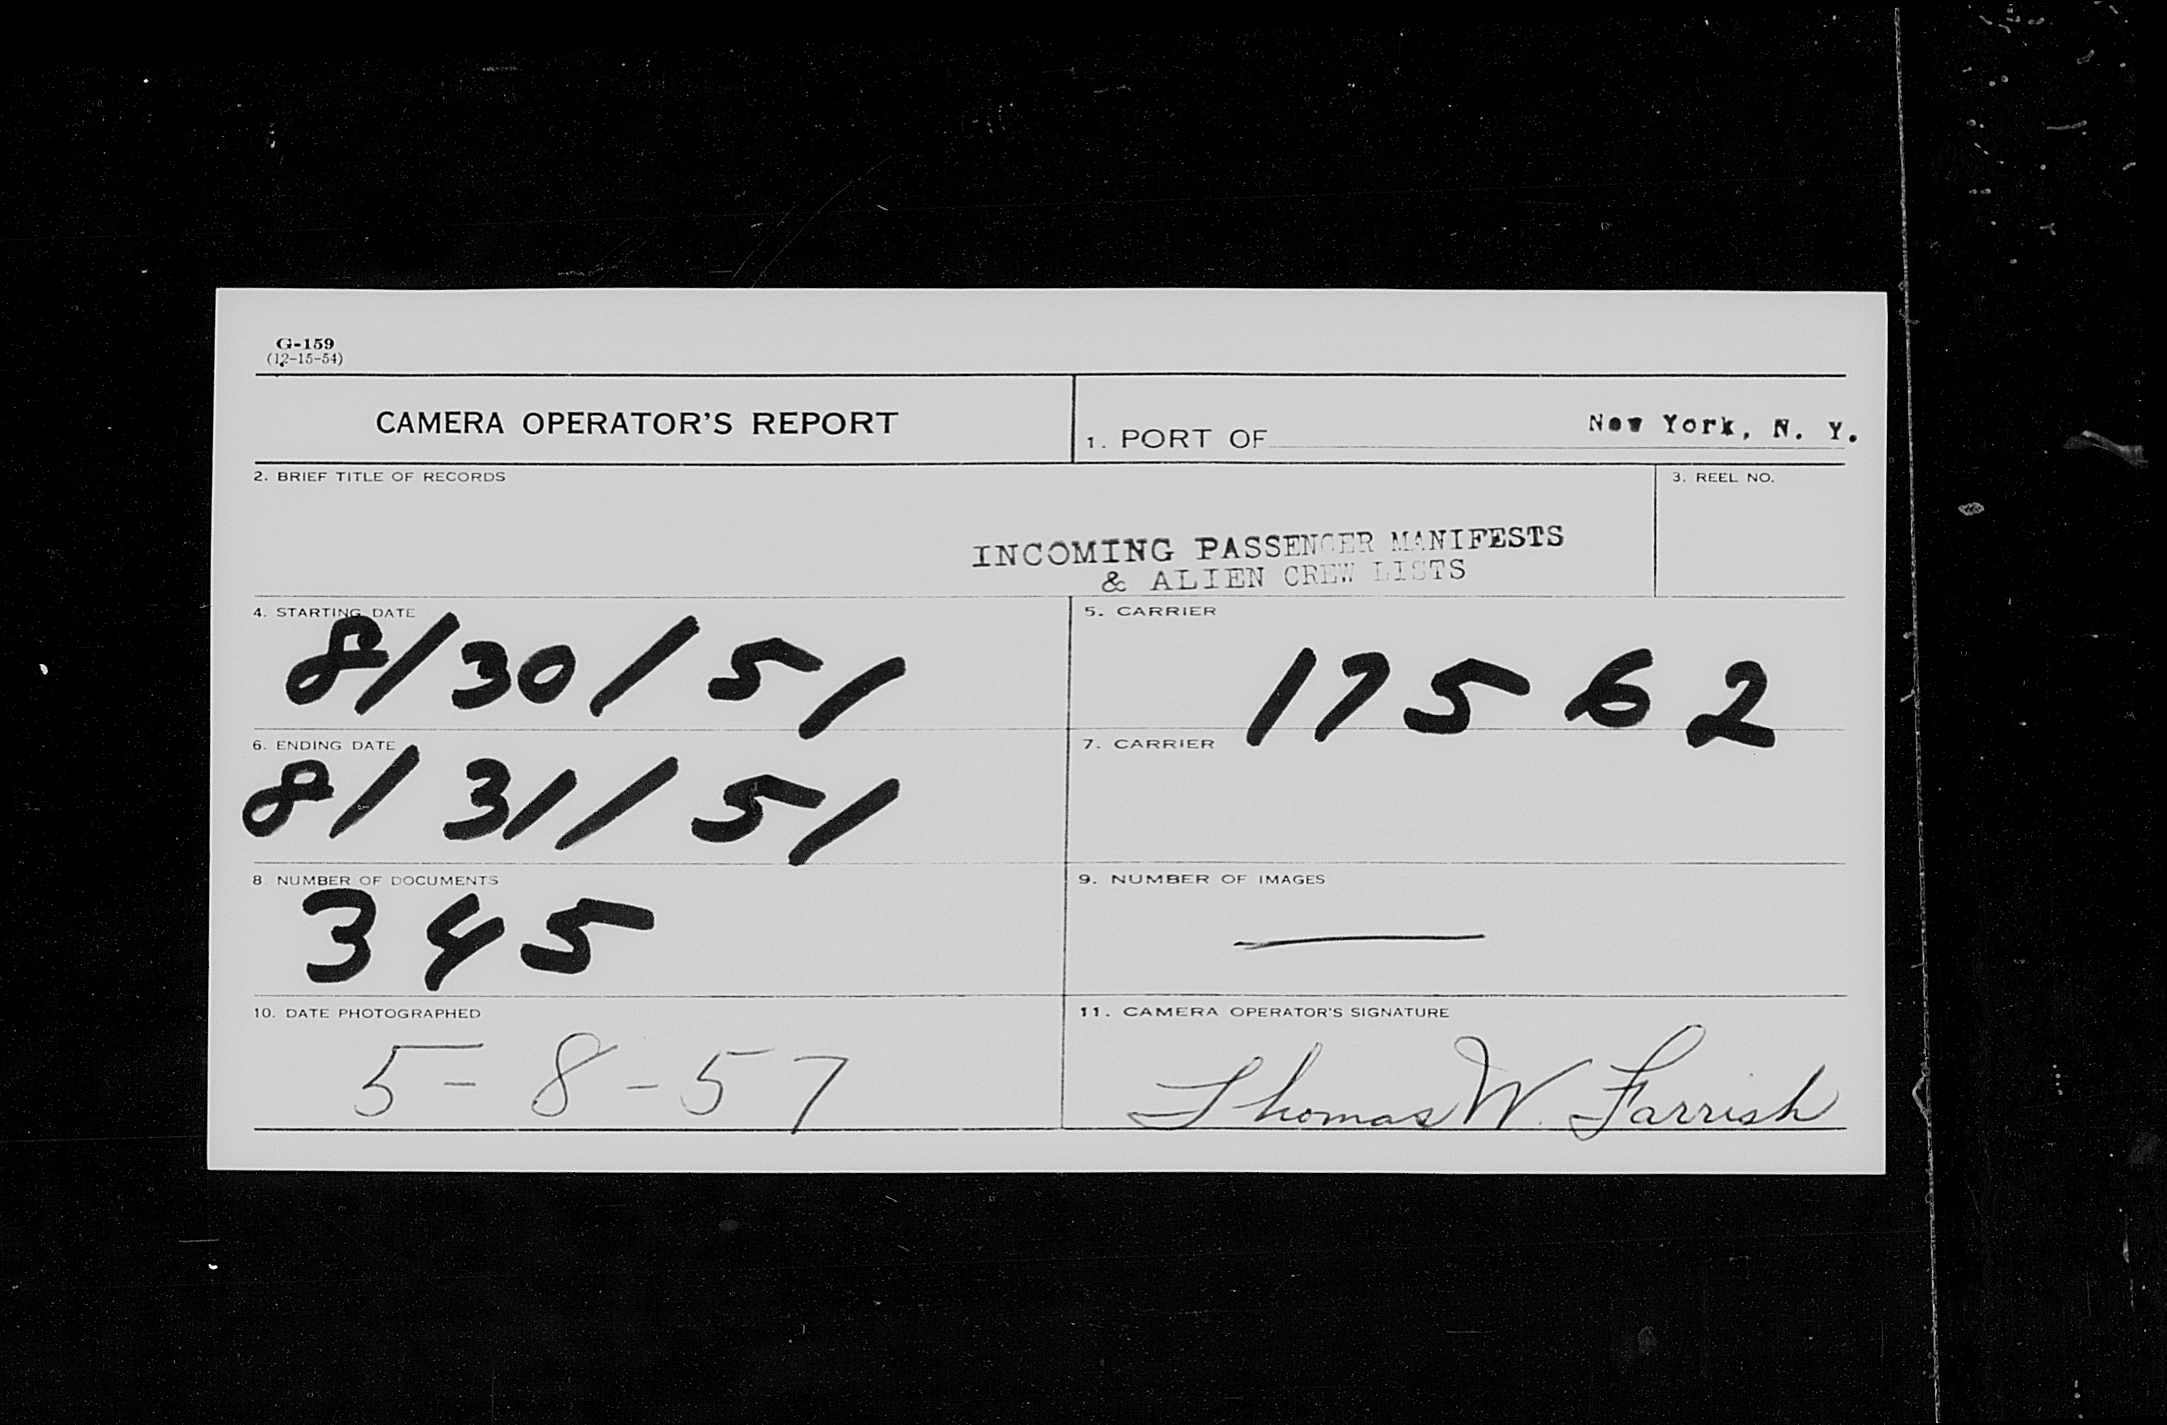 G-159
(12-15-54)
CAMERA OPERATOR'S REPORT
1. PORT OF New York, N. Y.
2. BRIEF TITLE OF RECORDS
3. REEL NO.
INCOMING PASSENGER MANIFESTS
& ALIEN CREW LISTS
4. STARTING DATE
8/30/51
5. CARRIER
17562
6. ENDING DATE
8/31/51
7. CARRIER
8 NUMBER OF DOCUMENTS
345
9. NUMBER OF IMAGES
—
10. DATE PHOTOGRAPHED
5-8-57
11. CAMERA OPERATOR'S SIGNATURE
Thomas W. Farrish